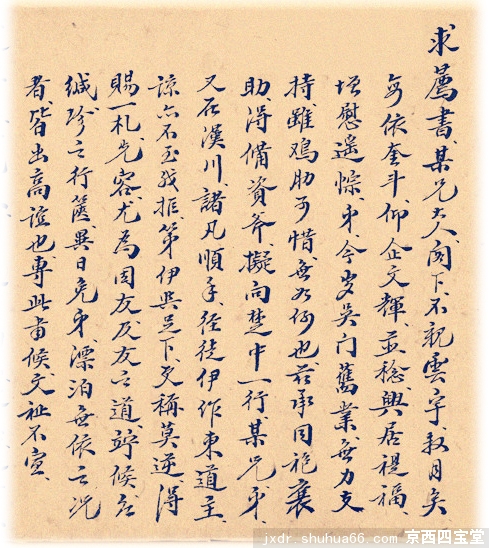 求薦書、某兄大人閣下、不親雲宇、数月矣
每依奎斗、仰企文輝、並稔興居禔福、
增慰遥悰、弟今岁吴门舊業、無力支
持、雖鸡肋可惜、無如何也、茲承同袍襄
助、得備資斧、擬向楚中一行、某兄弟、
又在漢川、諸凡順手、径徒伊作東道主
諒亦不至我拒、第伊與足下、更稱莫逆、得
賜一札先容、尤為因友及友之道、竚候台
缄、珍之行篋、異日免弟漂泊無依之况
者、皆出高誼也、專此肅候文祉不宣、
jxdr.shuhua66.com 京西四宝堂